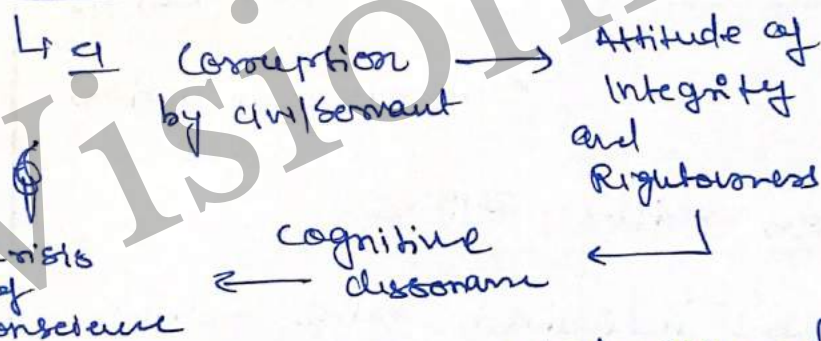 ↳ eg Corruption by civil servant → Attitude of Integrity and Rightousness
← Cognitive dissonance ←
Crisis of Conscience
Vision